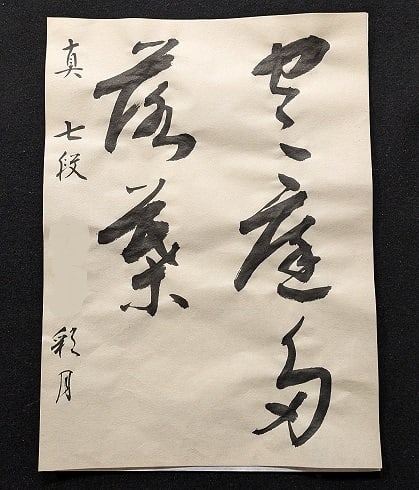 空庭多
落葉
真 七段 彩月